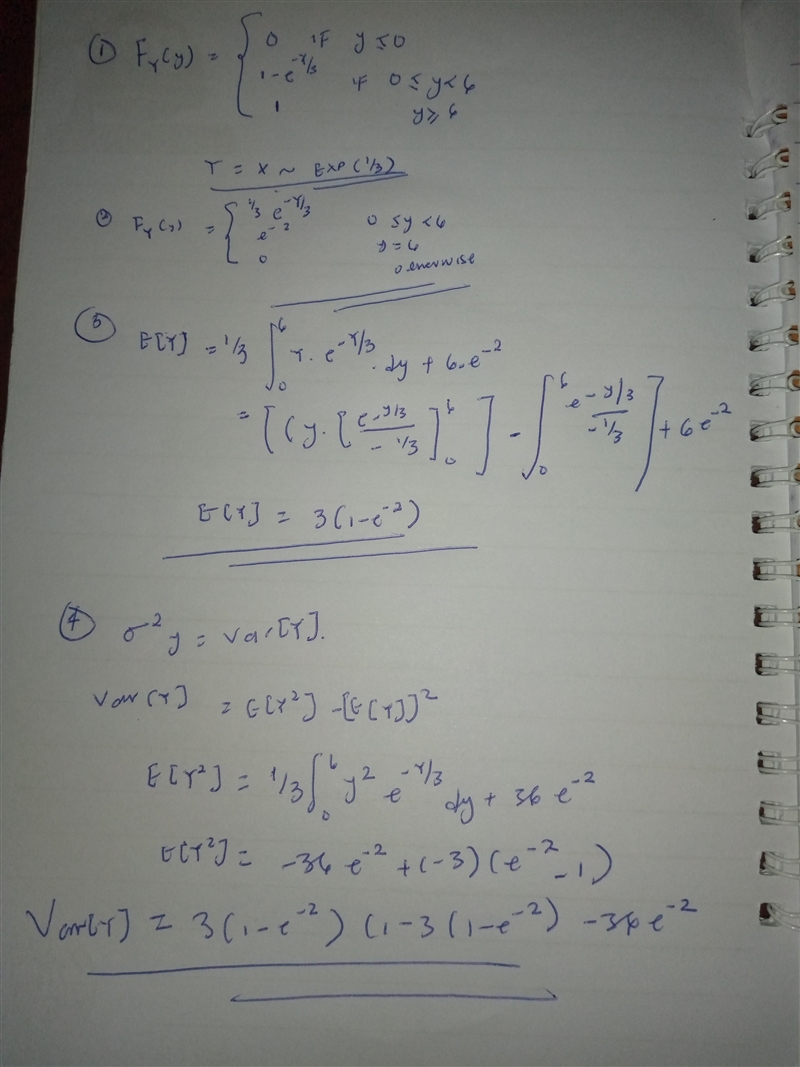 ① F_Y(y) = { 0 if y ≤ 0
1-e^{-Y/3} if 0 ≤ y < 6
1 y ≥ 6
Y = X ~ EXP(1/3)
② F_Y(y) = { 1/3 e^{-Y/3} 0 ≤ y < 6
e^{-2} y = 6
0 otherwise
③ E[Y] = 1/3 ∫_0^6 Y. e^{-Y/3} . dy + 6.e^{-2}
= [ (y. [ e^{-y/3} / -1/3 ]_0^6 ] - ∫_0^6 e^{-y/3} / -1/3 ] + 6e^{-2}
E[Y] = 3(1-e^{-2})
④ σ^2 y = Var[Y].
Var[Y] = E[Y^2] - [E[Y]]^2
E[Y^2] = 1/3 ∫_0^6 y^2 e^{-Y/3} dy + 36 e^{-2}
E[Y^2] = -36 e^{-2} + (-3)(e^{-2} - 1)
Var[Y] = 3(1-e^{-2}) (1-3(1-e^{-2}) - 36e^{-2}